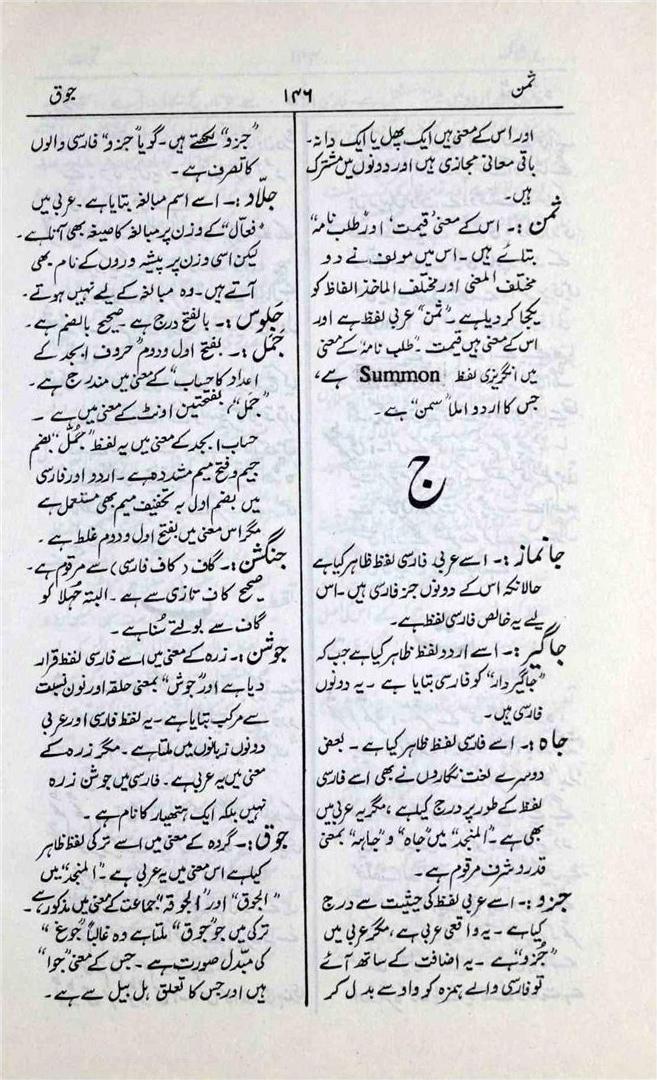 ثمن
۱۴۶
جوق
اور اس کے معنی ہیں ایک پھل یا ایک دانہ۔
باقی معانی مجازی ہیں اور دونوں میں مشترک
ہیں۔
ثمن :۔ اس کے معنی "قیمت" اور "طلب نامہ"
بتائے ہیں۔ اس میں مولف نے دو
مختلف المعنی اور مختلف الماخذ الفاظ کو
یکجا کر دیا ہے۔ "ثمن" عربی لفظ ہے اور
اس کے معنی ہیں قیمت۔ "طلب نامہ" کے معنی
میں انگریزی لفظ Summon ہے،
جس کا اردو املا "سمن" ہے۔
ج
جانماز :۔ اسے عربی فارسی لفظ ظاہر کیا ہے
حالانکہ اس کے دونوں جز فارسی ہیں۔ اس
لیے یہ خالص فارسی لفظ ہے۔
جاگیر :۔ اسے اردو لفظ ظاہر کیا ہے جب کہ
"جاگیردار" کو فارسی بتایا ہے۔ یہ دونوں
فارسی ہیں۔
جاہ :۔ اسے فارسی لفظ ظاہر کیا ہے۔ بعض
دوسرے لغت نگاروں نے بھی اسے فارسی
لفظ کے طور پر درج کیا ہے، مگر یہ عربی میں
بھی ہے۔ "المنجد" میں "جاہ" و "جاہہ" بمعنی
قدر و شرف مرقوم ہے۔
جزو :۔ اسے عربی لفظ کی حیثیت سے درج
کیا ہے۔ یہ واقعی عربی ہے، مگر عربی میں
"جُزْو" ہے۔ یہ اضافت کے ساتھ آئے
تو فارسی والے ہمزہ کو واو سے بدل کر
"جزو" لکھتے ہیں۔ گویا "جزو" فارسی والوں
کا تصرف ہے۔
جلّاد :۔ اسے اسم مبالغہ بتایا ہے۔ عربی میں
"فعاّل" کے وزن پر مبالغہ کا صیغہ بھی آتا ہے۔
لیکن اسی وزن پر پیشہ وروں کے نام بھی
آتے ہیں۔ وہ مبالغہ کے لیے نہیں ہوتے۔
جَلوس :۔ بالفتح درج ہے صحیح بالضم ہے۔
جُمَل :۔ بفتح اول و دوم "حروف ابجد کے
اعداد کا حساب" کے معنی میں مندرج ہے۔
"جَمَل"، بفتحتین اونٹ کے معنی میں ہے۔
حساب ابجد کے معنی میں یہ لفظ "جُمَّل" بضم
جیم و فتح میم مشدد ہے۔ اردو اور فارسی
میں بضم اول بہ تخفیف میم بھی مستعمل ہے
مگر اس معنی میں بفتح اول و دوم غلط ہے۔
جنگشن :۔ گاف (کاف فارسی) سے مرقوم ہے۔
صحیح کاف تازی سے ہے۔ البتہ جُہلا کو
گاف سے بولتے سُنا ہے۔
جوشن :۔ زرہ کے معنی میں اسے فارسی لفظ قرار
دیا ہے اور "جوش" بمعنی حلقہ اور نون نسبت
سے مرکب بتایا ہے۔ یہ لفظ فارسی اور عربی
دونوں زبانوں میں ملتا ہے۔ مگر زرہ کے
معنی میں یہ عربی ہے۔ فارسی میں جوشن زرہ
نہیں بلکہ ایک ہتھیار کا نام ہے۔
جوق :۔ گروہ کے معنی میں اسے ترکی لفظ ظاہر
کیا ہے اس معنی میں یہ عربی ہے۔ "المنجد" میں
"الجوق" اور "الجوقۃ" جماعت کے معنی میں مذکور ہے۔
ترکی میں جو "جوق" ملتا ہے وہ غالباً "جوغ"
کی مبدل صورت ہے۔ جس کے معنی "جوا"
ہیں اور جس کا تعلق ہل بیل سے ہے۔